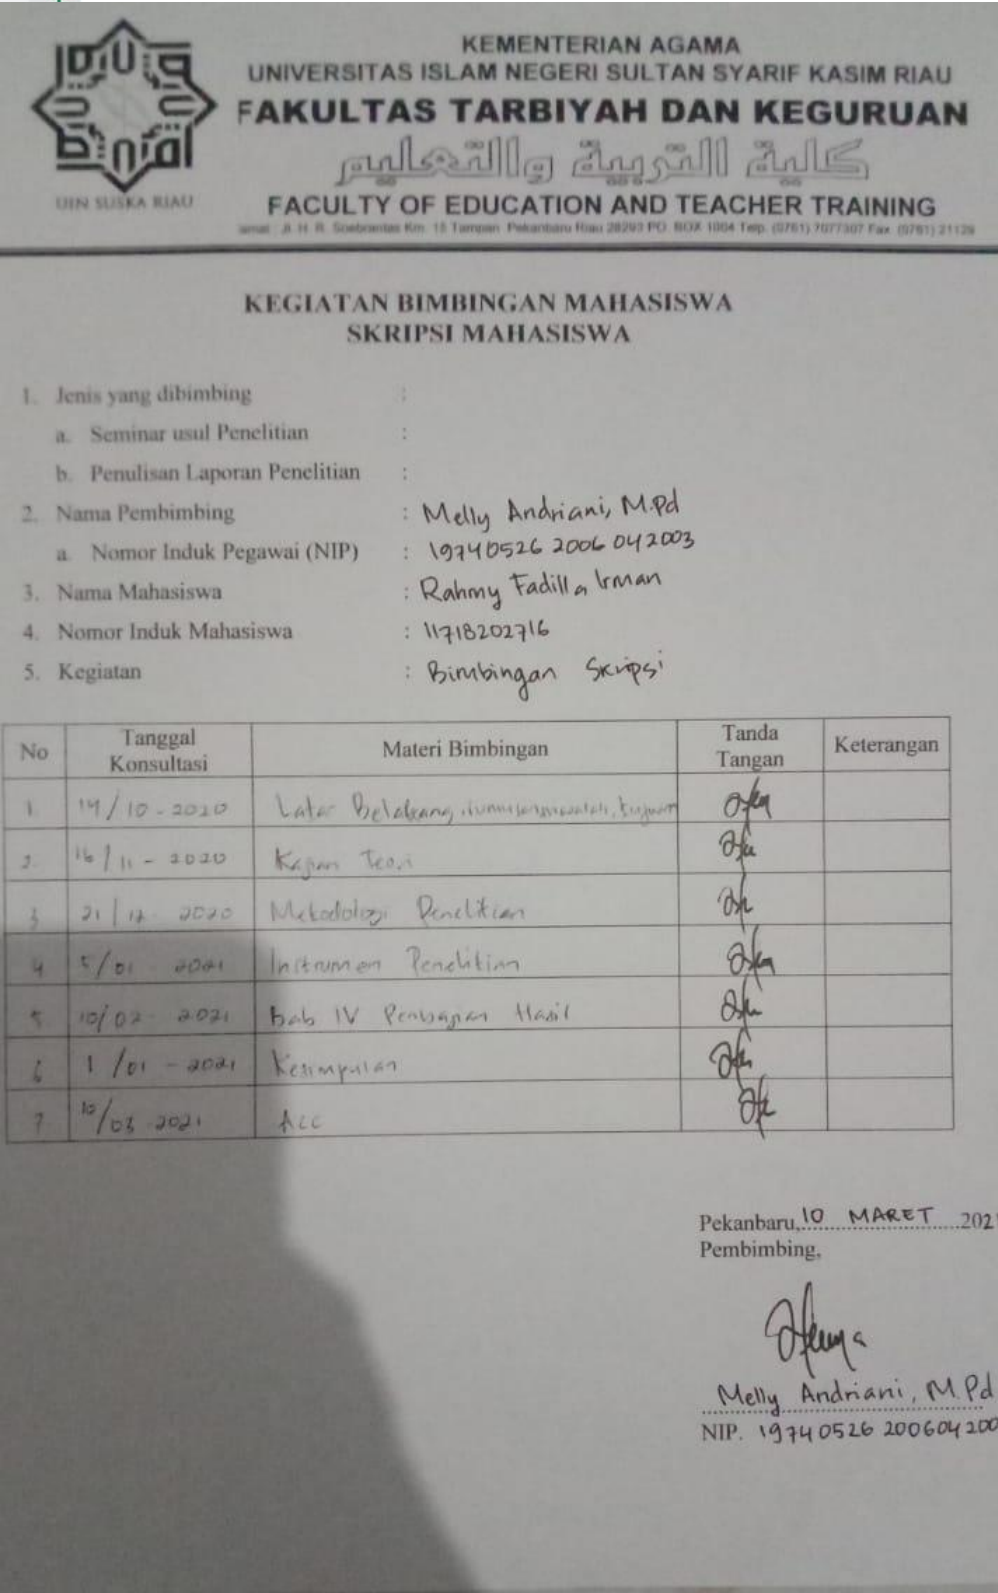 KEMENTERIAN AGAMA
UNIVERSITAS ISLAM NEGERI SULTAN SYARIF KASIM RIAU
FAKULTAS TARBIYAH DAN KEGURUAN
كلية التربية والتعليم
FACULTY OF EDUCATION AND TEACHER TRAINING
UIN SUSKA RIAU
Jl. H. R. Soebrantas Km. 15 Tampan Pekanbaru Riau 28293 PO. BOX 1004 Telp. (0761) 7077307 Fax. (0761) 21129
KEGIATAN BIMBINGAN MAHASISWA
SKRIPSI MAHASISWA
1. Jenis yang dibimbing :
a. Seminar usul Penelitian :
b. Penulisan Laporan Penelitian :
2. Nama Pembimbing : Melly Andriani, M.Pd
a. Nomor Induk Pegawai (NIP) : 19740526 2006 042003
3. Nama Mahasiswa : Rahmy Fadilla Irman
4. Nomor Induk Mahasiswa : 11718202716
5. Kegiatan : Bimbingan Skripsi
No Tanggal Konsultasi Materi Bimbingan Tanda Tangan Keterangan
1. 14/10-2020 Latar Belakang,
2. 16/11-2020 Kajian Teori
3 21/12 2020 Metodologi Penelitian
4 5/01 2021 Instrumen Penelitian
5 10/02- 2021 Bab IV Hasil
6 1/01-2021 Kesimpulan
7 10/03 2021 Acc
Pekanbaru, 10 MARET 202
Pembimbing,
Melly Andriani, M.Pd
NIP. 19740526 200604200